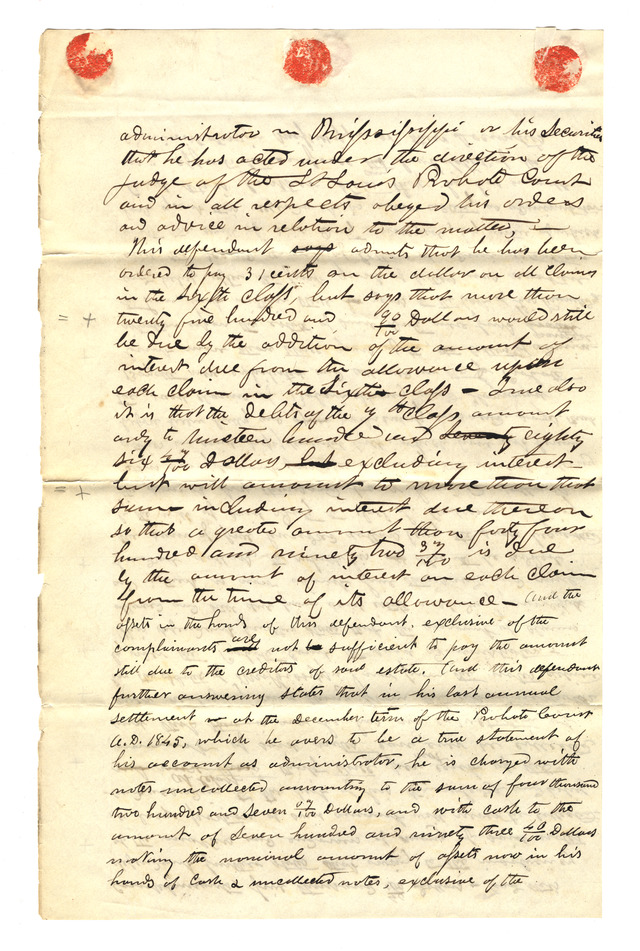 administrator in Mississippi or his Securities
that he has acted under the direction of the
Judge of the St Louis Probate Court
and in all respects obeyed his orders
and advice in relation to the matter, —
This dependant says admits that he has been
ordered to pay 31 cents on the dollar on all claims
in the sixth class, but says that more than
= + twenty five hundred and 90/100 Dollars would still
be due by the addition of the amount of
interest due from the allowance upon
each claim in the Sixth class – True also
it is that the debts of the 7th class amount
only to Nineteen hundred and seventy eighty
six 47/100 Dollars but excluding interest
= + but will amount to more than that
sum including interest due thereon
so that a greater amount than forty four
hundred and ninety two 37/100 is due
by the amount of interest on each claim
from the time of its allowance – And the
assets in the hands of this defendant, exclusive of the
complainants are not be sufficient to pay the amount
still due to the creditors of said estate. And this defendant
further answering states that in his last annual
settlement at the December term of the Probate Court
A.D. 1845, which he avers to be a true statement of
his account as administrator, he is charged with
notes uncollected amounting to the sum of four thousand
two hundred and seven 07/100 Dollars, and with cash to the
amount of Seven hundred and ninety three 40/100 Dollars
making the nominal amount of assets now in his
hands of Cash & uncollected notes, exclusive of the